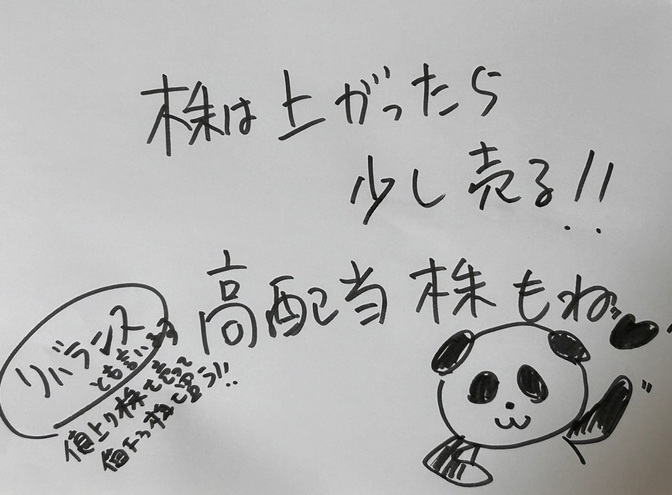 株は上がったら
少し売る!!
高配当株もね
リバランス
とも言います
値上り株を売って
値下り株を買う!!